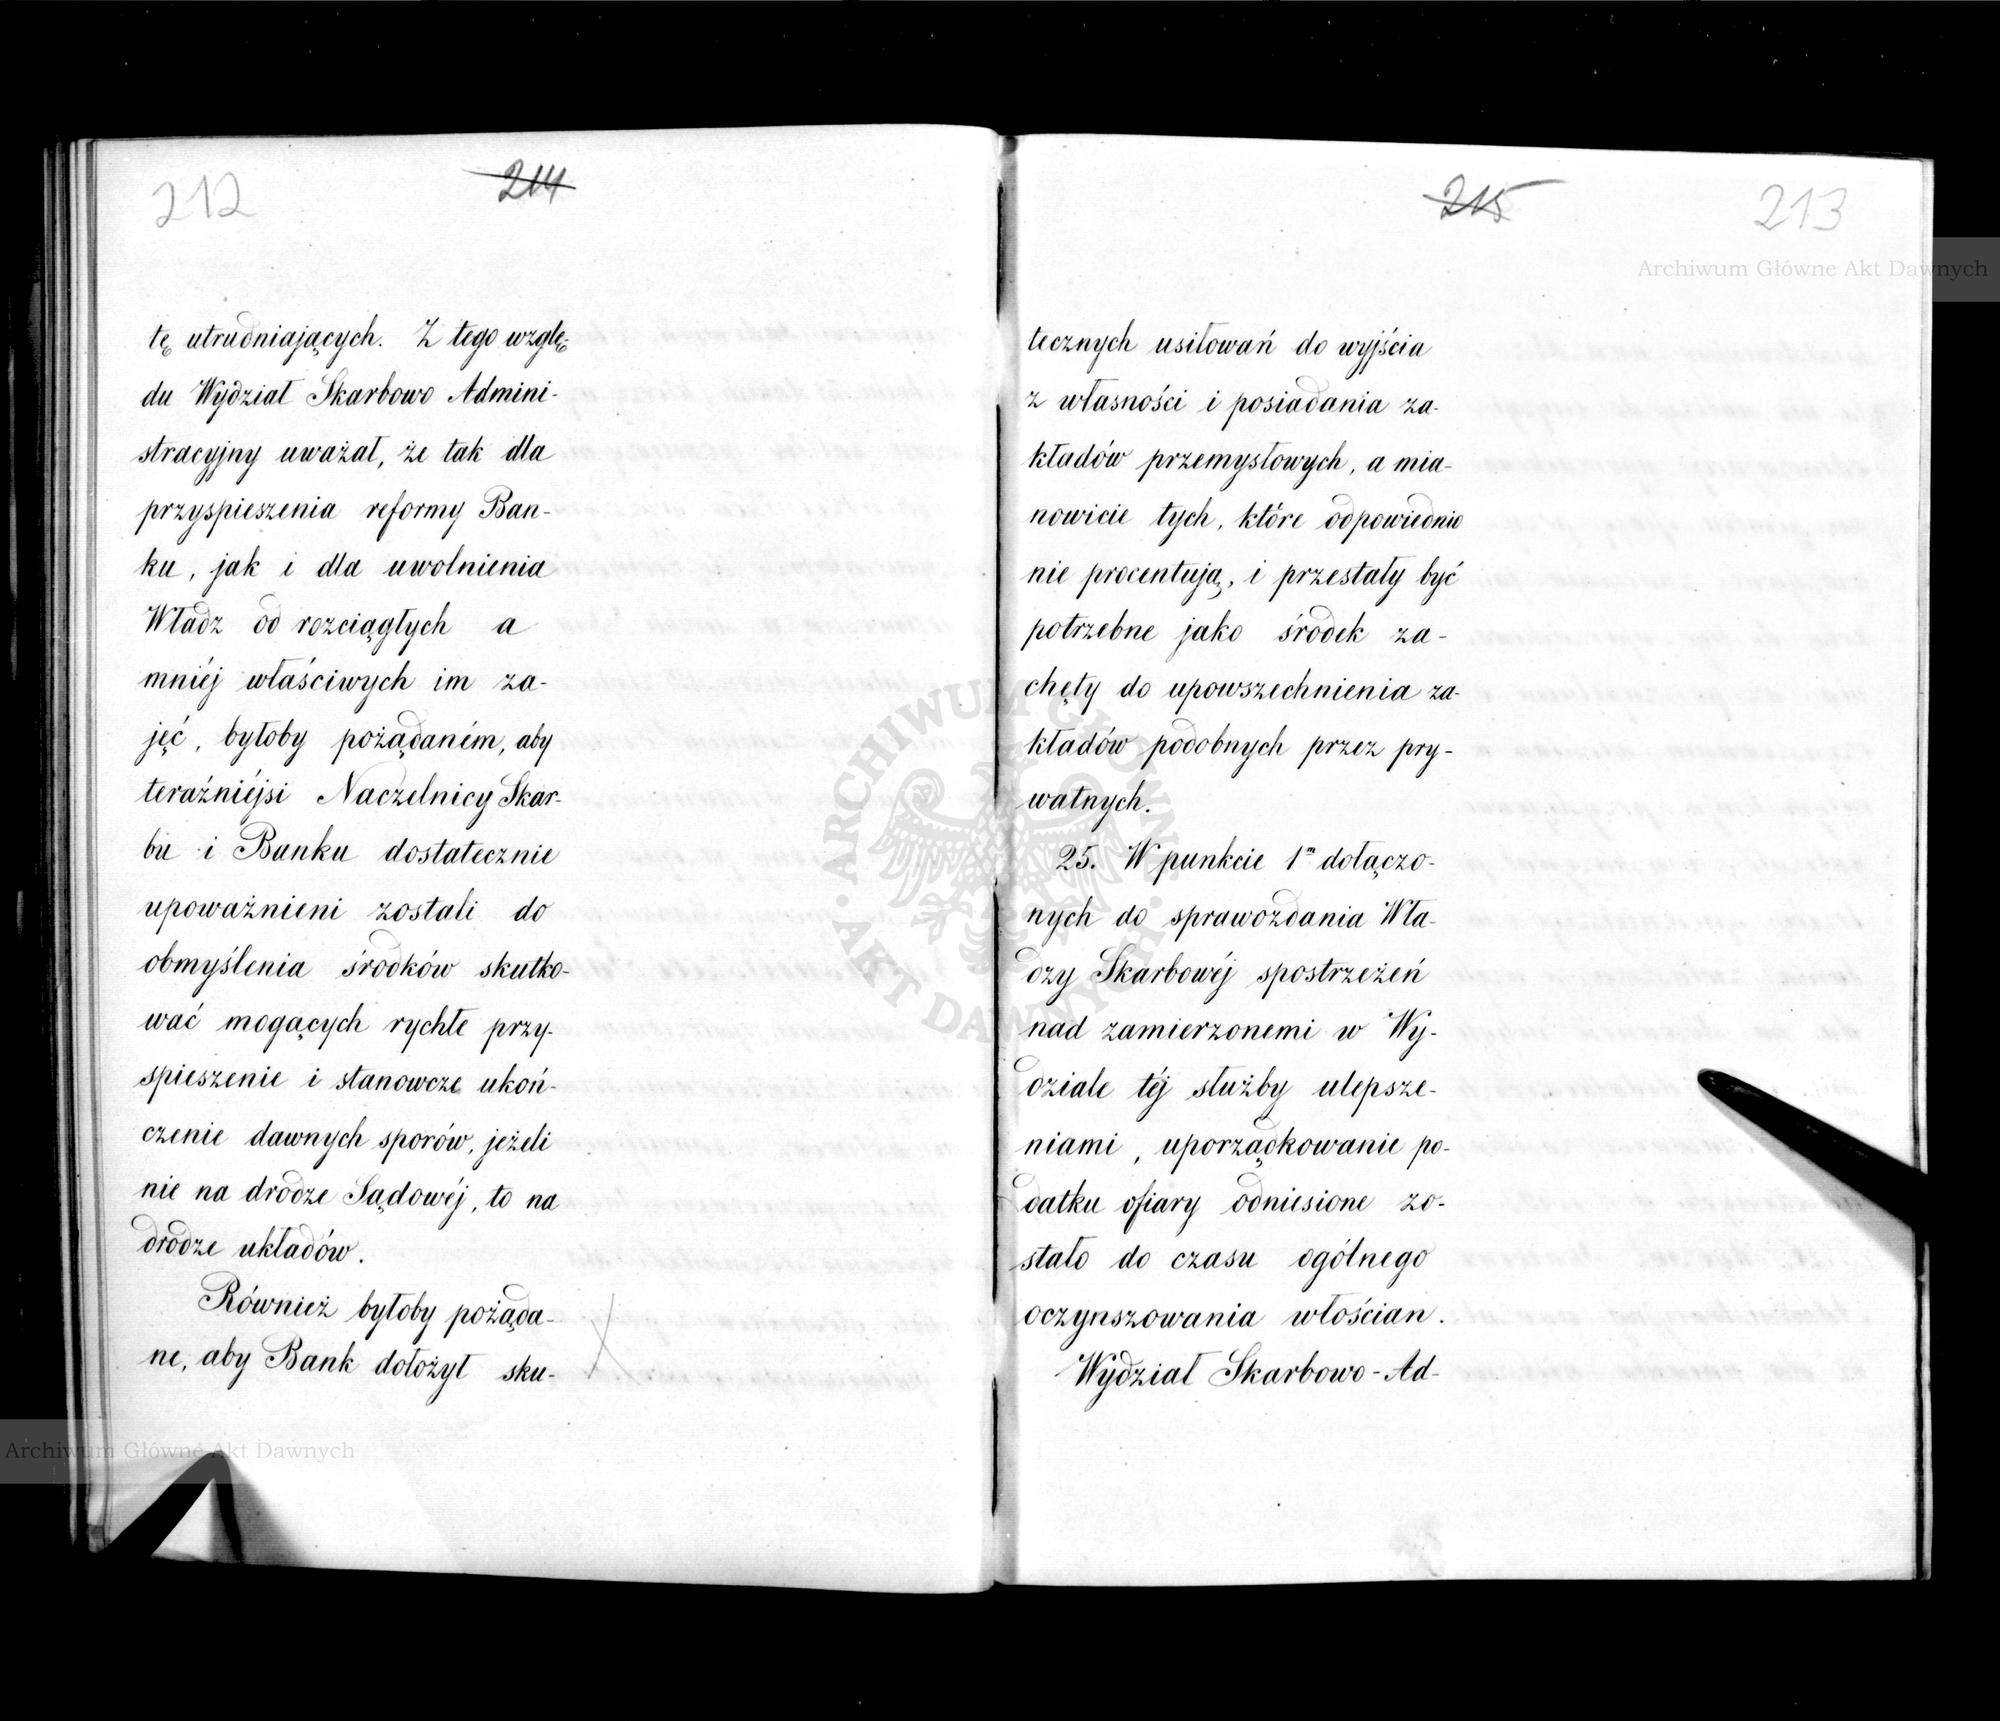 212
214
tę utrudniających. Z tego wzglę-
du Wydział Skarbowo Admini-
stracyjny uważał, że tak dla
przyspieszenia reformy Ban-
ku, jak i dla uwolnienia
Władz od rozciągłych a
mniéj właściwych im za-
jęć, byłoby pożądaném, aby
teraźniéjsi Naczelnicy Skar-
bu i Banku dostatecznie
upoważnieni zostali do
obmyślenia środków skutko-
wać mogących rychłe przy-
spieszenie i stanowcze ukoń-
czenie dawnych sporów, jeżeli
nie na drodze Sądowéj, to na
drodze układów.
Również byłoby pożąda-
ne, aby Bank dołożył sku-
215
213
Archiwum Główne Akt Dawnych
tecznych usiłowań do wyjścia
z własności i posiadania za-
kładów przemysłowych, a mia-
nowicie tych, które odpowiednio
nie procentują, i przestały być
potrzebne jako środek za-
chęty do upowszechnienia za-
kładów podobnych przez pry-
watnych.
25. W punkcie 1m dołączo-
nych do sprawozdania Wła-
dzy Skarbowéj spostrzeżeń
nad zamierzonemi w Wy-
dziale téj służby ulepsze-
niami, uporządkowanie po-
datku ofiary odniesione zo-
stało do czasu ogólnego
oczynszowania włościan.
Wydział Skarbowo-Ad-
ARCHIWUM GŁÓWNE · AKT DAWNYCH ·
Archiwum Główne Akt Dawnych